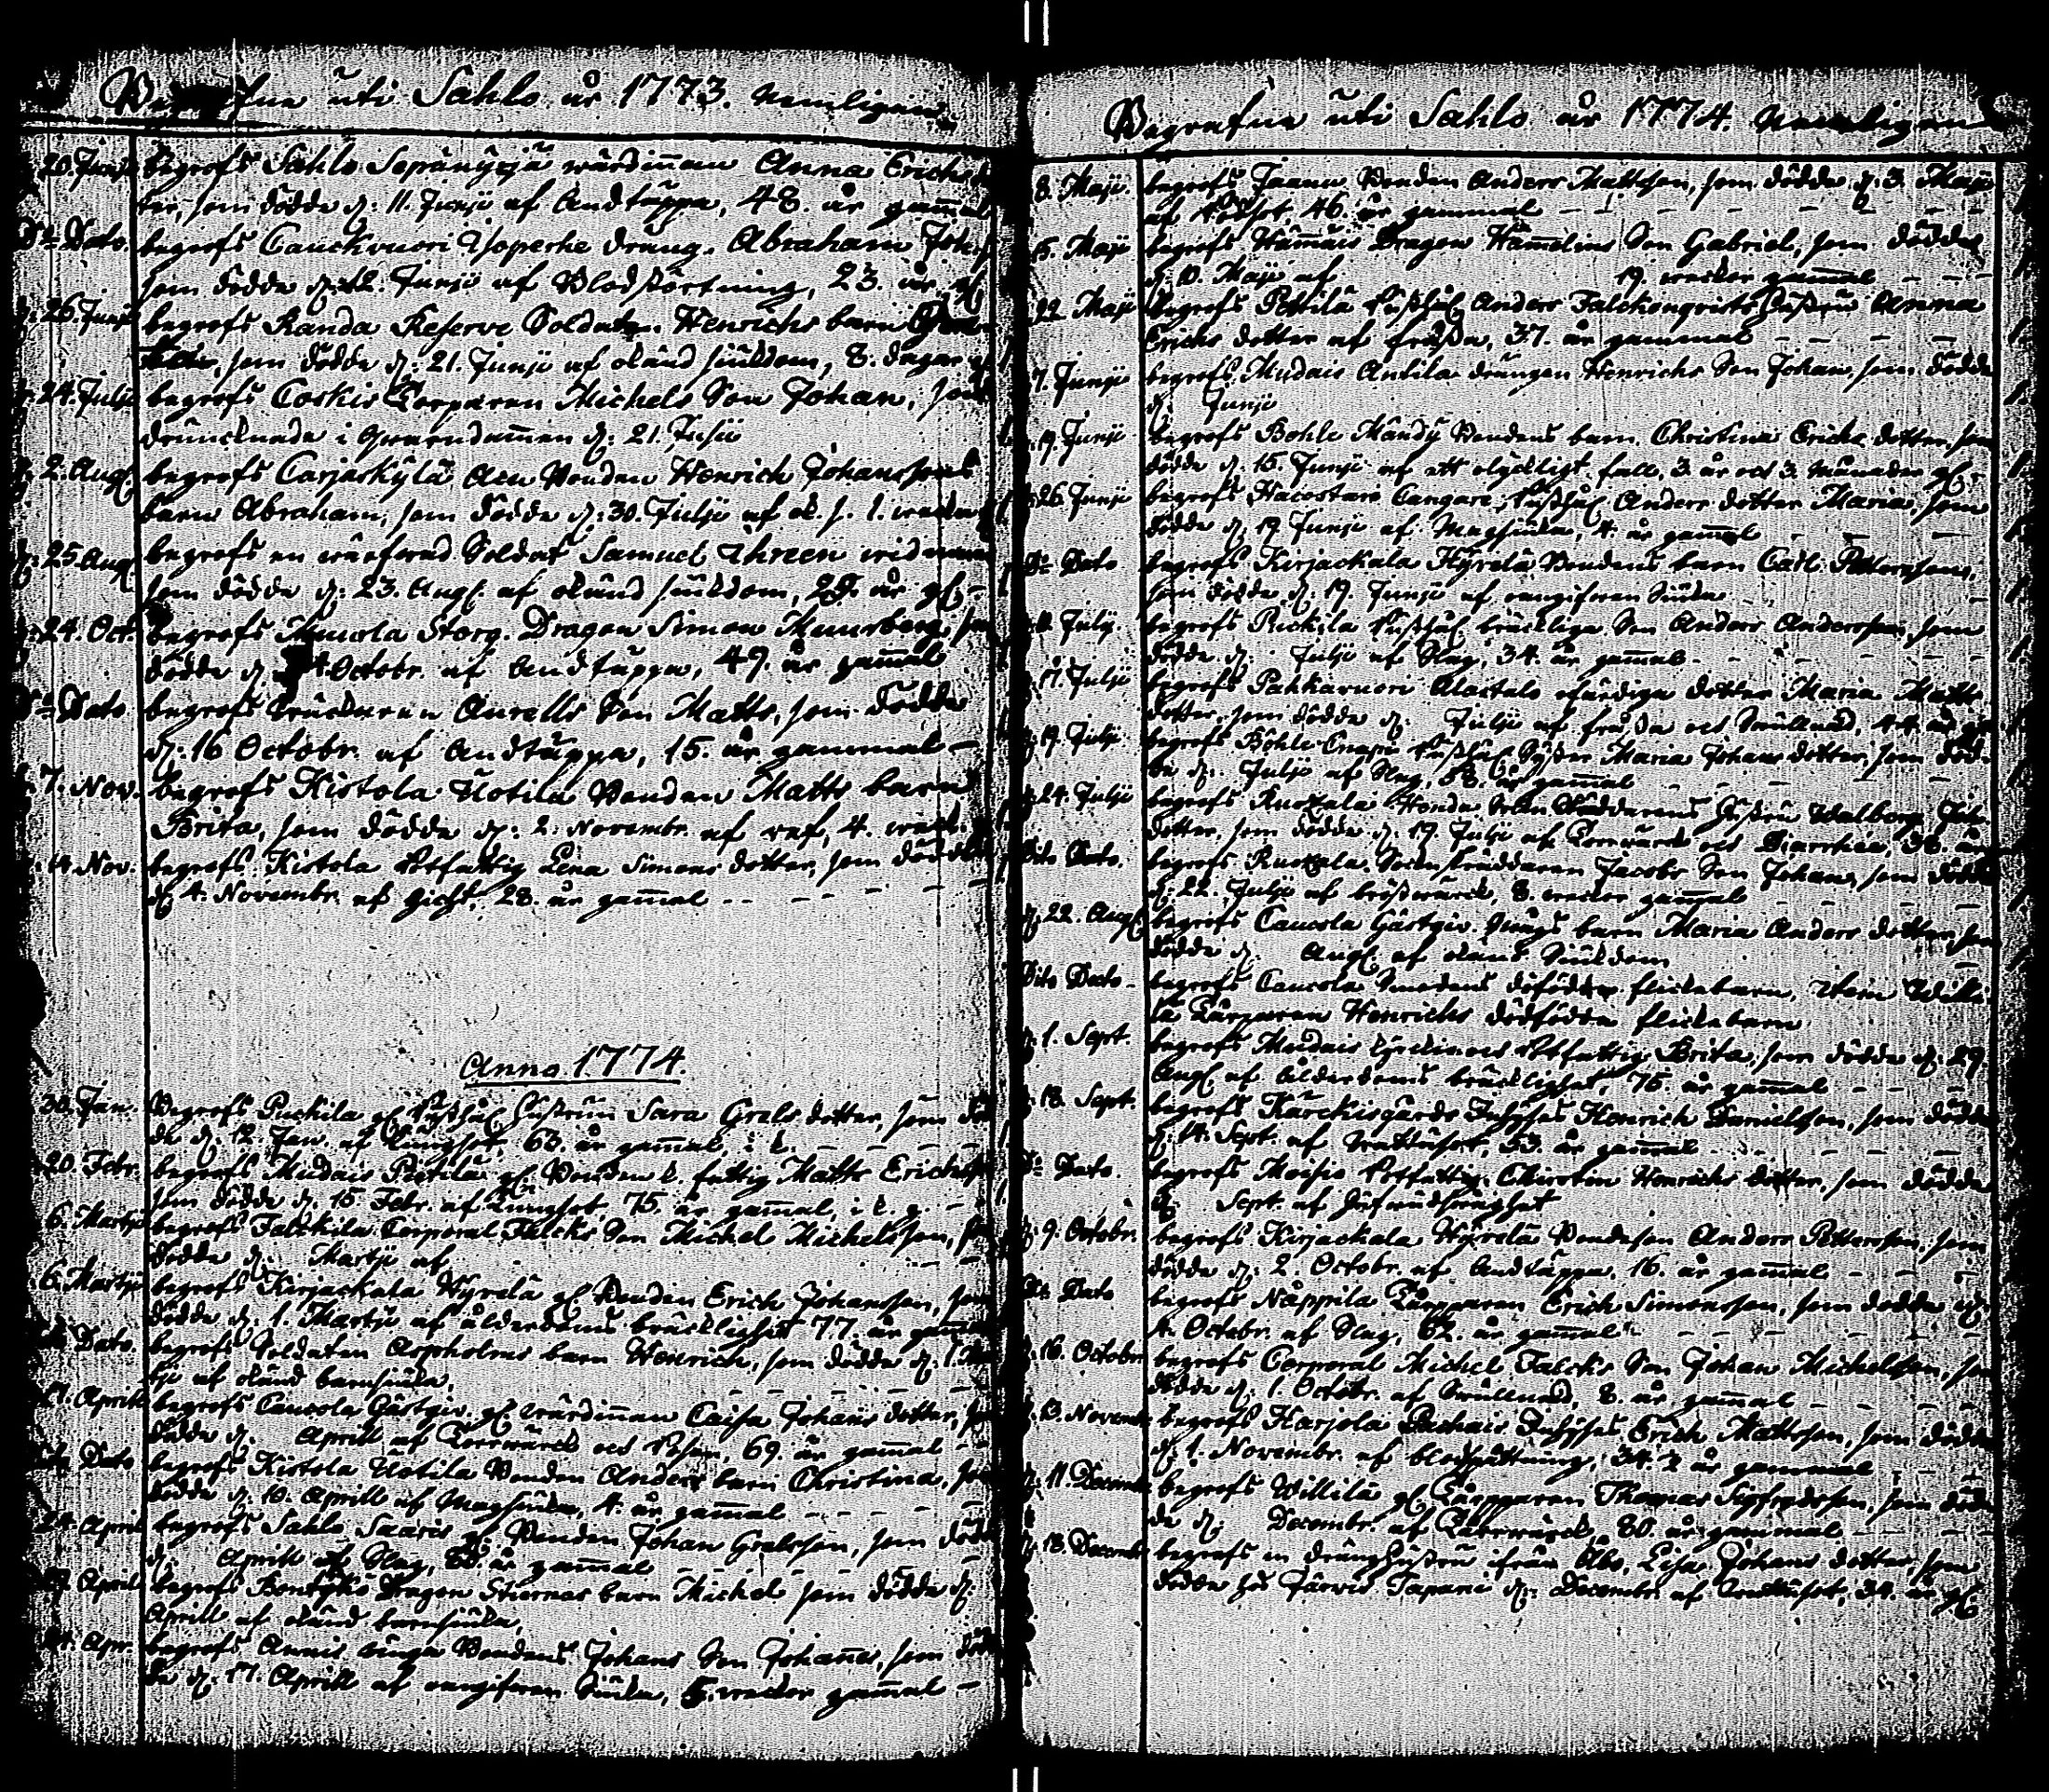 uti Sahlo år 1773. Nemligen
20. Junii begrofs Sahlo Sepänyijä wärdinnan Anna Erichs
ter, som dödde d: 11. Junii af Andtäppa, 48. år gammal
Do Dato. begrofs Cauckvuori Yoperhe dräng. Abraham Joh
som dödde d: 12. Junii af Blodstörtning, 23. år
26 Junii begrofs Randa Reserve Soldatens Henrichs barn
som dödde d: 21. Junii af okänd siukdom, 8. dagar
24. Julii begrofs Coskis Torparen Michels Son Johan, som
drunknade i Qwarndammen d: 21. Julii
2. Aug begrofs Carjaskylä Alen Bonden Henrich Johanssons
barn Abraham, som dödde d: 30. Julii af ok. s. 1. wecka
25. Aug begrofs en wärfwad Soldat Samuel Threen
som dödde d: 23. Aug. af okänd siukdom, 28. år gl.
24. Oct. begrofs Muurla Storg. Dragon Simon Muurberg, som
dödde d: Octobr. af Andtäppa, 49. år gammal
Do Dato begrofs Anrells Son Matts, som dödde
d: 16 Octobr. af Andtäppa, 15. år gammal -
7. Nov. begrofs Kistola Uotila Bonden Matts barn
Brita, som dödde d: 2. Novembr. af ref, 4. weck.
14. Nov. begrofs Kistola Rotfattig Lena Simons dotter, som dödde
d: 4. Novembr. af Gicht, 28. år gammal - -
Anno 1774.
30. Jan. Begrofs Puckila gl Rusthål hustrun Sara Grels dotter, som död
de d: 12. Jan. af Lungsot, 63. år gammal
20. Febr. begrofs Mudais Pietilä gl. Bonden fattig Matts Erichss
som dödde d: 15 Febr. af Lungsot 75. år gammal
6. Martii begrofs Falckila Corporal Falcks Son Michel Michelsson,
dödde d: Martii af
6. Martii begrofs Kirjackala Hyrelä gl Bonden Erich Johansson, som
dödde d: 1. Martii af ålderdoms bräcklighet 77. år gammal
Dato. begrofs Soldaten Aspholms barn Henrich, som dödde d: 1. Mar
tji af okänd barnsiuka.
17. Aprill begrofs Caucola Gästgiv. gl wärdinnan Caisa Johans dotter,
dödde d: Aprill af Torrwärck och Rosen, 69. år gammal - -
Dito Dato begrofs Kistola Uotila Bonden Anders barn Christina,
dödde d: 10. Aprill af Magsiuka, 4. år gammal
24 April begrofs Sahlo Saaris gl Bonden Johan Grelsson, som död
d: Aprill af Slag, 80. år gammal
April begrofs Dragon Stiernas barn Michel som dödde d:
Aprill af okänd barnsiuka,
Apr. begrofs Annis unga Bondens Johans Son Johannes, som död
de d: 17. Aprill af rangifwen Siuka, 5. weckor gammal -
Begrafne uti Sahlo år 1774. Nemligen
8. Maji. begrofs Jaanu Bonden Anders Mattsson, som dödde d: 3. Maji
af 46. år gammal
15. Maji begrofs Hämmäis Dragon Hämmelins Son Gabriel, som dödde
d: 10. Maji af 19. weckor gammal
22 Maji begrofs Pettilä Rusthål Anders Falckenqvists hustru Anna
Erichs dotter af frossa, 37. år gammal
7. Junii begrofs Mudais Antila drängen Henrichs Son Johan, som dödde
d: Junii
19. Junii begrofs Bohle Mändy Bondens barn Christina Erichs dotter, som
dödde d: 15. Junii af ett olyckligt fall, 3. år och 3. Månader gl.
26. Junii begrofs Hacostaro Cangare Rusthål Anders dotter Maria, som
dödde d: 19 Junii af Magsiuka, 4. år gammal
Do Dato begrofs Kirjackala Hyrelä Bondens barn Carl Pettersson,
som dödde d: 19. Junii af rangifwen Siuka
Julii. begrofs Rickila Rusthål bräcklige Son Anders Andersson, som
dödde d: Julii af Slag, 34. år gammal
17. Julii begrofs Pahkavuori Alastalo dotter Maria Matts
dotter, som dödde d: Julii af frossa och Swullnad, 44. år
19. Julii begrofs Böhle Rusthål Syster Maria Johans dotter, som död-
de d: Julii af Slag, 58. år gammal
24. Julii begrofs Ruotzala hustru Walborg
dotter, som dödde d: 19. Julii af Torrwärck och Diarrhea, 38. år
Dito Dato. begrofs Ruotzala Sockenskräddaren Jacobs Son Johan, som dödde
d: 22. Julii af bröstwärck, 8. weckor gammal
22. Aug. begrofs Caucola Gästgiv. barn Maria Anders dotter, som
dödde d: Aug. af okänd Siukdom
Dito Dato - begrofs Caucola Smedens dödfödda flickebarn, item Willi
lä Torparen Henrichs dödfödda flickebarn
1. Sept. begrofs Mudais Rotfattig Brita, som dödde d: 29
Aug af ålderdoms bräcklighet, 75. år gammal
18. Sept. begrofs Kärckisgårds Inhyses Henrich Danielsson, som dödde
d: 14. Sept. af Wattusot, 53. år gammal
Do Dato begrofs Moisio Rotfattig Christin Henrichs dotter, som dödde
d: Sept. af
9. Octobr. begrofs Kirjackala Hyrelä Bondeson Anders Pettersson, som
dödde d: 2. Octobr. af Andtäppa, 16. år gammal
Do Dato begrofs Näppilä Torparen Erich Simonsson, som dödde d:
4. Octobr. af Slag, 62. år gammal
16. Octobr begrofs Corporal Michel Falcks Son Johan Michelsson, som
dödde d: 1. Octobr. af Swullnad, 8. år gammal
13. Novemb begrofs Karjola Pachais Inhyses Erich Mattsson, som dödde
d: 1. Novembr. af blodspottning, 34. 1/2 år gammal
11. Decemb begrofs Willilä gl Torparen Thomas Sigfredsson, som död
de d: Decembr. af Torrwärck, 80. år gammal
18. Decemb begrofs en dränghustru ifrån Åbo, Lisa Johans dotter, som
dödde hos Järvis Tapani d: Decembr. af Wattusot, 34. år gl.